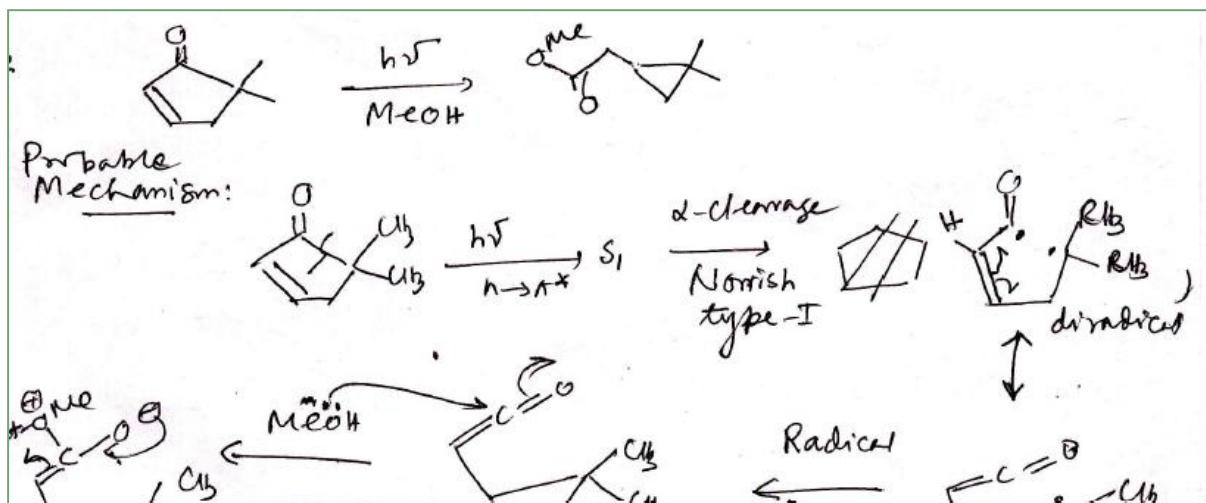 O
hν
MeOH
OMe
O
Probable
Mechanism:
O
CH3
CH3
hν
n→π*
S1
α-clearage
Norrish
type-I
H
O
CH3
CH3
diradical
MeÖH
⊕
OMe
H
C
O
⊖
CH3
C
O
CH3
CH3
Radical
C
O
CH3